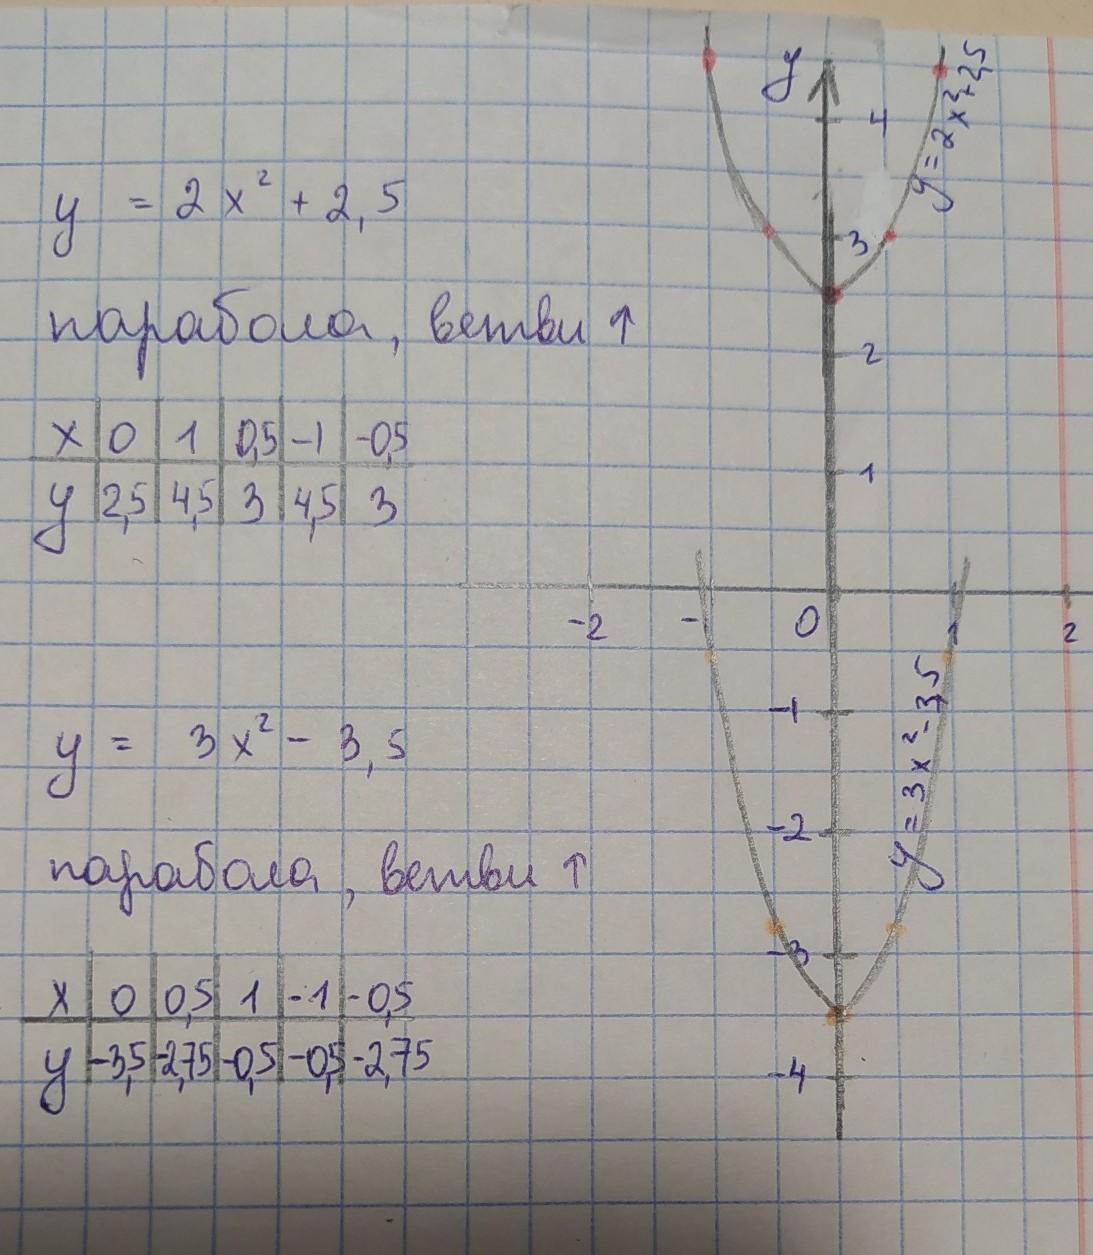 y = 2x² + 2,5
парабола, ветви ↑
x 0 1 0,5 -1 -0,5
y 2,5 4,5 3 4,5 3
y = 3x² - 3,5
парабола, ветви ↑
x 0 0,5 1 -1 -0,5
y -3,5 -2,75 -0,5 -0,5 -2,75
y
4
y = 2x² + 2,5
3
2
1
-2 -1 0 1 2
-1
y = 3x² - 3,5
-2
-3
-4